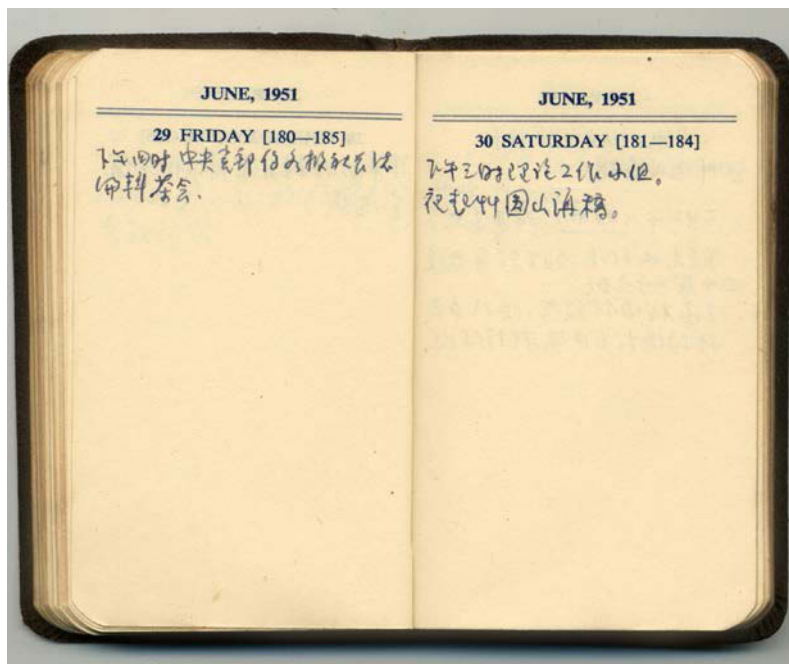 JUNE, 1951
29 FRIDAY [180—185]
下午四时中央党部
茶会.
JUNE, 1951
30 SATURDAY [181—184]
下午三时理论工作小组。
夜起草圆山演稿。